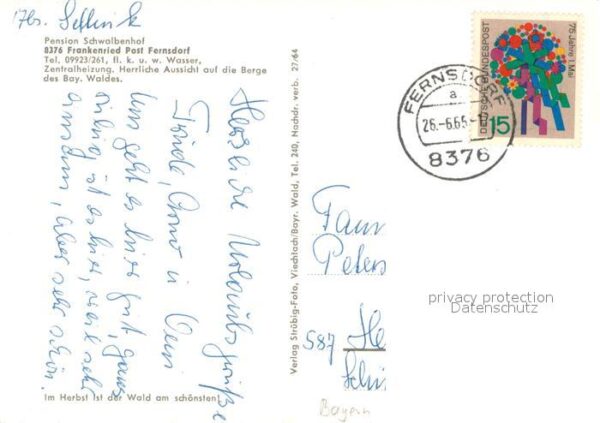 Pension Schwalbenhof
8376 Frankenried Post Fernsdorf
Tel. 09923/261, fl. k. u. w. Wasser,
Zentralheizung. Herrliche Aussicht auf die Berge
des Bay. Waldes.
Herzliche Urlaubsgrüße
uns geht es hier gut, ganz
ruhig ist es hier, weil sehr
einsam, aber sehr schön.
Im Herbst ist der Wald am schönsten!
Verlag Ströbig-Foto, Viechtach/Bayr. Wald, Tel. 240, Nachdr. verb. 27/64
FERNSDORF
a
26.-6.65
8376
DEUTSCHE BUNDESPOST
75 Jahre 1. Mai
15
Frau
Peters
587 He
privacy protection
Datenschutz
Bayern